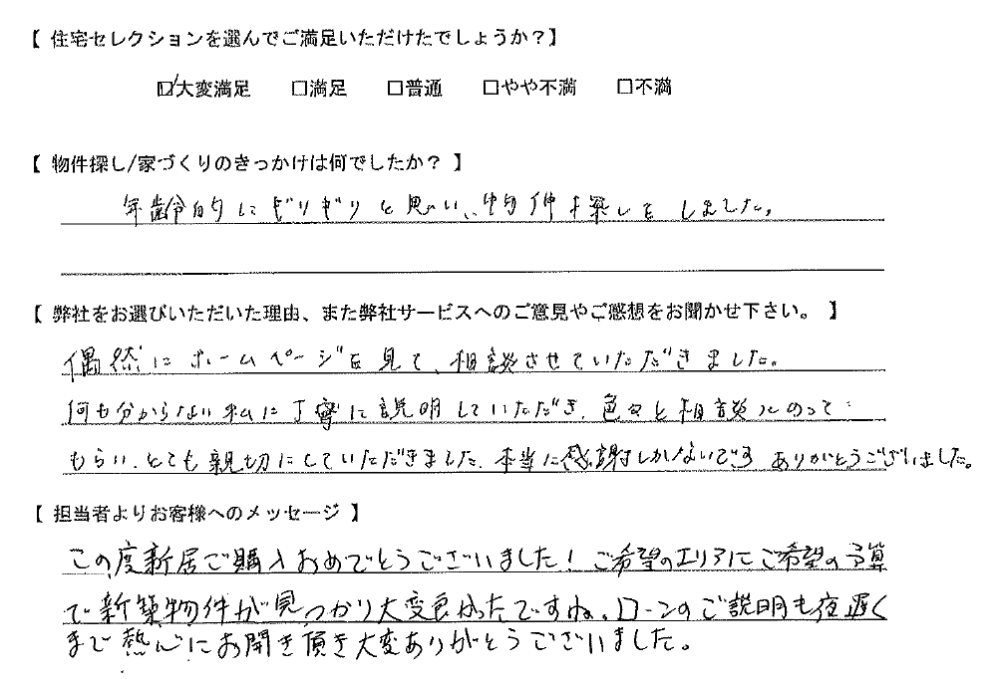 【 住宅セレクションを選んでご満足いただけたでしょうか?】
☑大変満足 □満足 □普通 □やや不満 □不満
【 物件探し/家づくりのきっかけは何でしたか? 】
年齢的にギリギリと思い、物件探しをしました。
【 弊社をお選びいただいた理由、また弊社サービスへのご意見やご感想をお聞かせ下さい。 】
偶然にホームページを見て、相談させていただきました。
何も分からない私に丁寧に説明していただき、色々と相談にのって
もらい、とても親切にしていただきました。本当に感謝しかないです ありがとうございました。
【 担当者よりお客様へのメッセージ 】
この度新居ご購入おめでとうございました!ご希望のエリアにご希望の予算
で新築物件が見つかり大変良かったですね。ローンのご説明も夜遅く
まで熱心にお聞き頂き大変ありがとうございました。